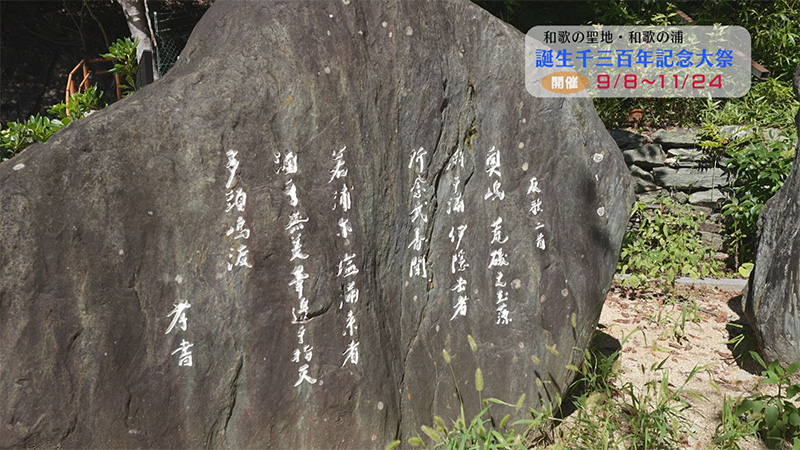 和歌の聖地・和歌の浦
誕生千三百年記念大祭
開催 9/8〜11/24
反歌二首
奥嶋 荒礒之玉藻
潮干満 伊隠去者
所念武香聞
若浦尓 塩満来者
潟乎無美 葦邊乎指天
多頭鳴渡
孝書